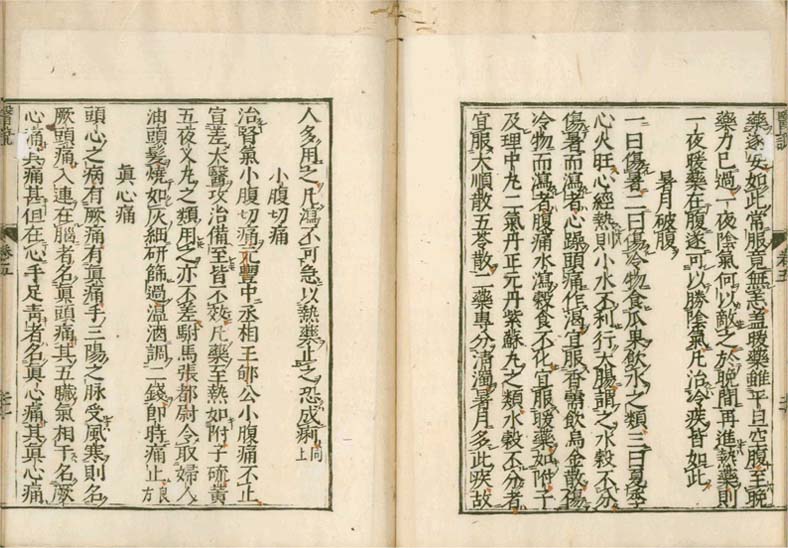 醫說
卷五
藥遂安如此常服竟無恙蓋暖藥雖平旦空腹至晩
藥力已過一夜陰氣何以敵之於晩間再進熱藥則
一夜暖藥在腹遂可以勝陰氣凡治冷疾皆如此
暑月破腹
一曰傷暑二曰傷冷物食瓜果飲水之類三曰夏季
心火旺心經熱則小水不利行大腸謂之水穀不分
傷暑而瀉者心躁頭痛作渴宜服香薷飲烏金散傷
冷物而瀉者腹痛水瀉穀食不化宜服暖藥如附子
及理中丸二氣丹正元丹紫蘇丸之類水穀不分者
宜服大順散五苓散二藥專分清濁暑月多此疾故
人多用之凡瀉不可急以熱藥止之恐成痢同上
小腹切痛
治腎氣小腹切痛元豐中丞相王郇公小腹痛不止
宣差太醫攻治備至皆不效凡藥至熱如附子硫黄
五夜叉丸之類用之亦不差駙馬張都尉令取婦人
油頭髮燒如灰細研篩過溫酒調二錢即時痛止良方
眞心痛
頭心之病有厥痛有眞痛手三陽之脉受風寒則名
厥頭痛入連在腦者名眞頭痛其五臟氣相干名厥
心痛其痛甚但在心手足青者名眞心痛其眞心痛
醫說
卷五